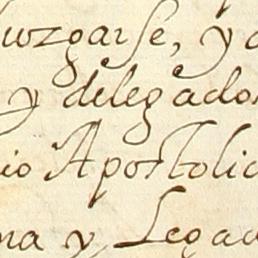 juzgarse, y
y delegados
Apostolic
y Legad